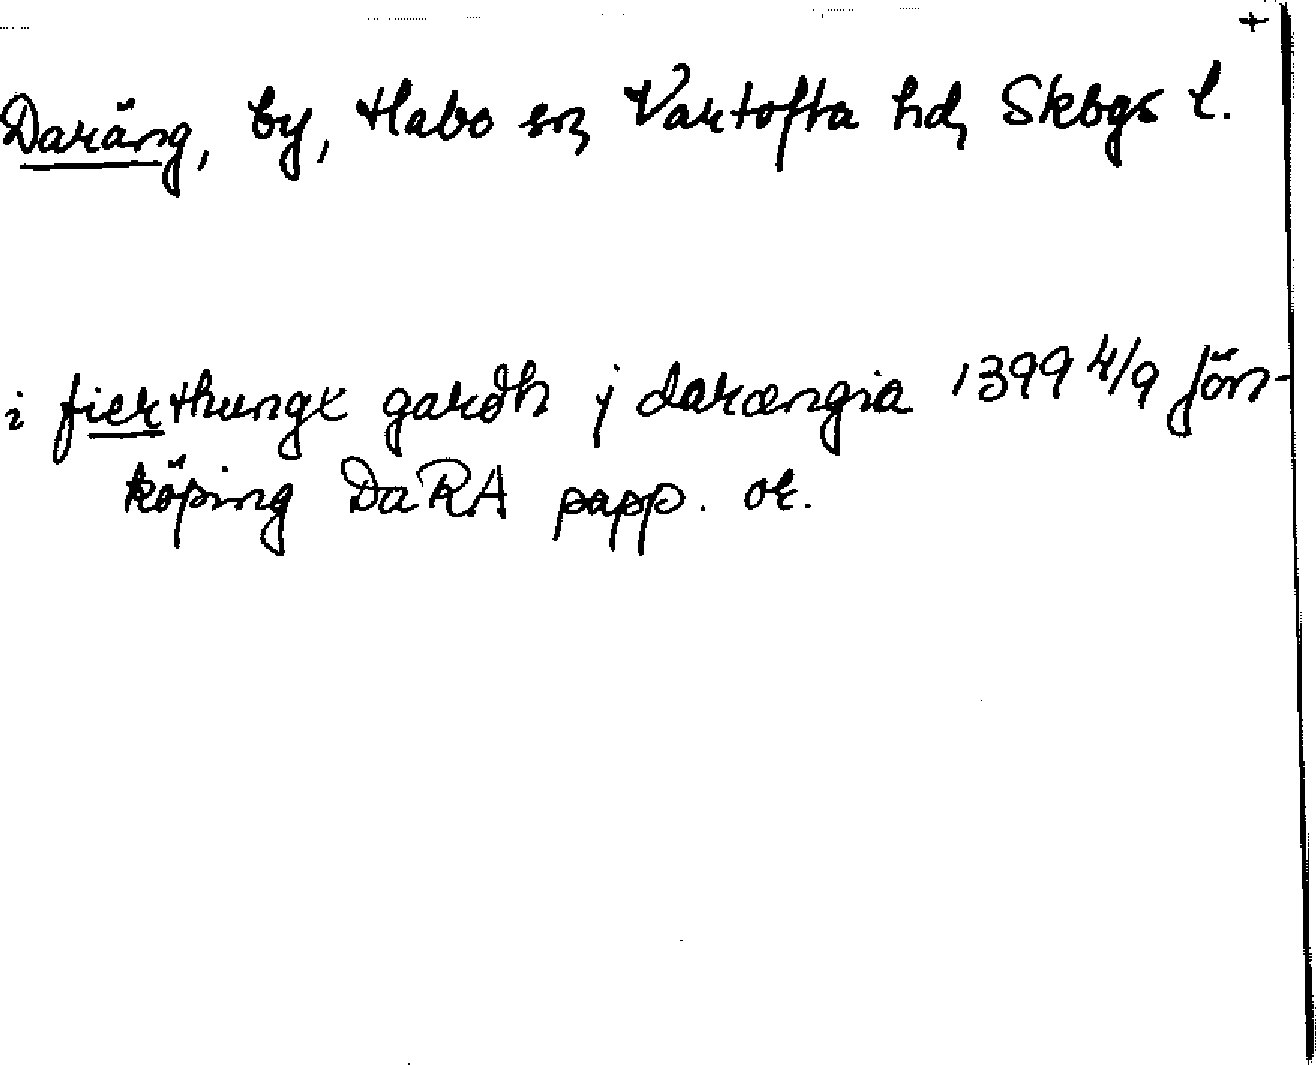 +
Daräng, by, Habo sn, Vartofta hd, Skbgs l.
i fierthungx gardh j darængia 1399 4/9 Jön-
köping DaRA papp. or.